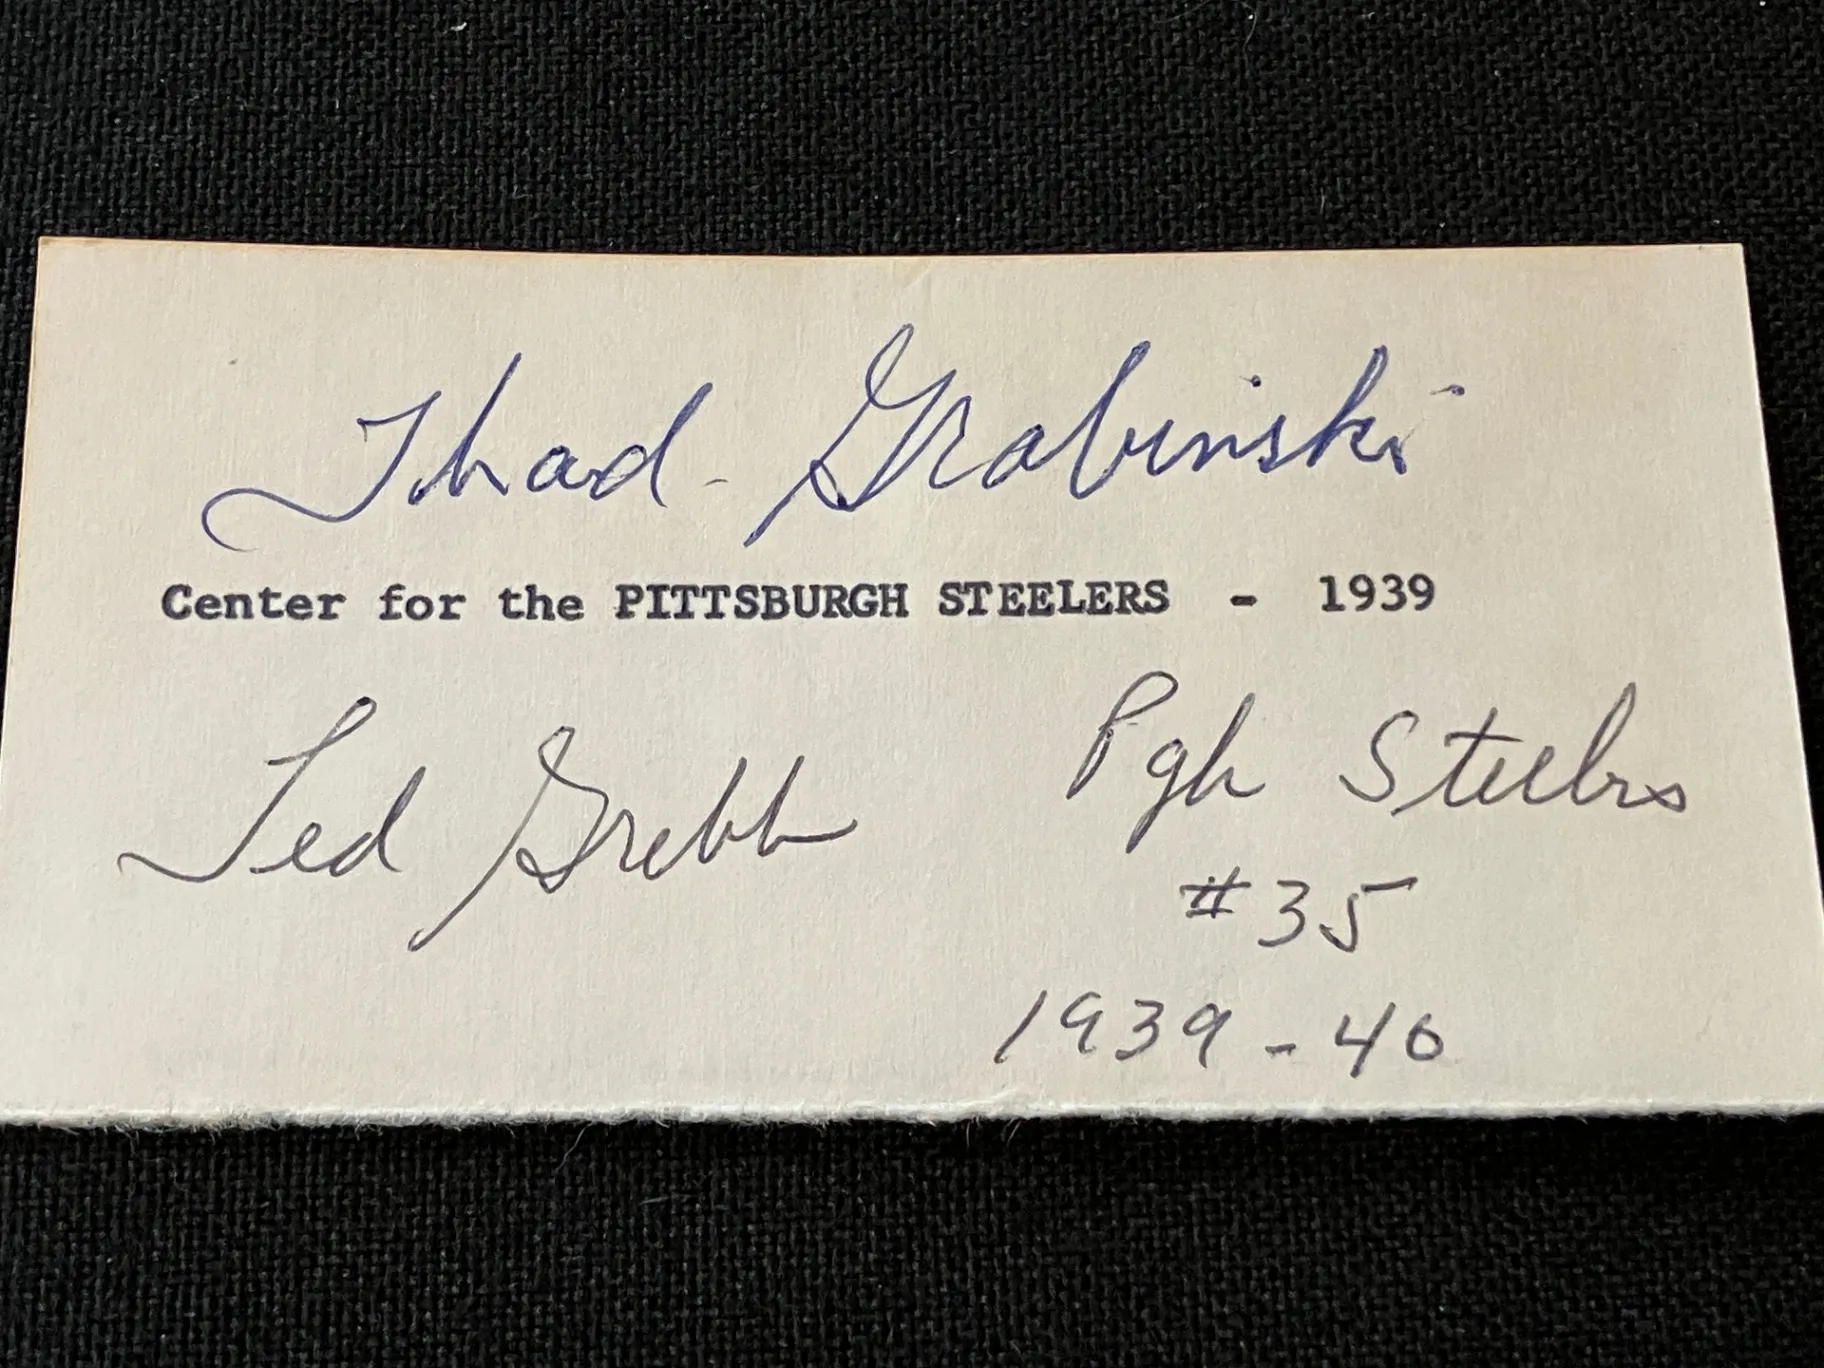 Thad Grabinski
Center for the PITTSBURGH STEELERS - 1939
Ted Grebb
Pgh Steelers
#35
1939-40